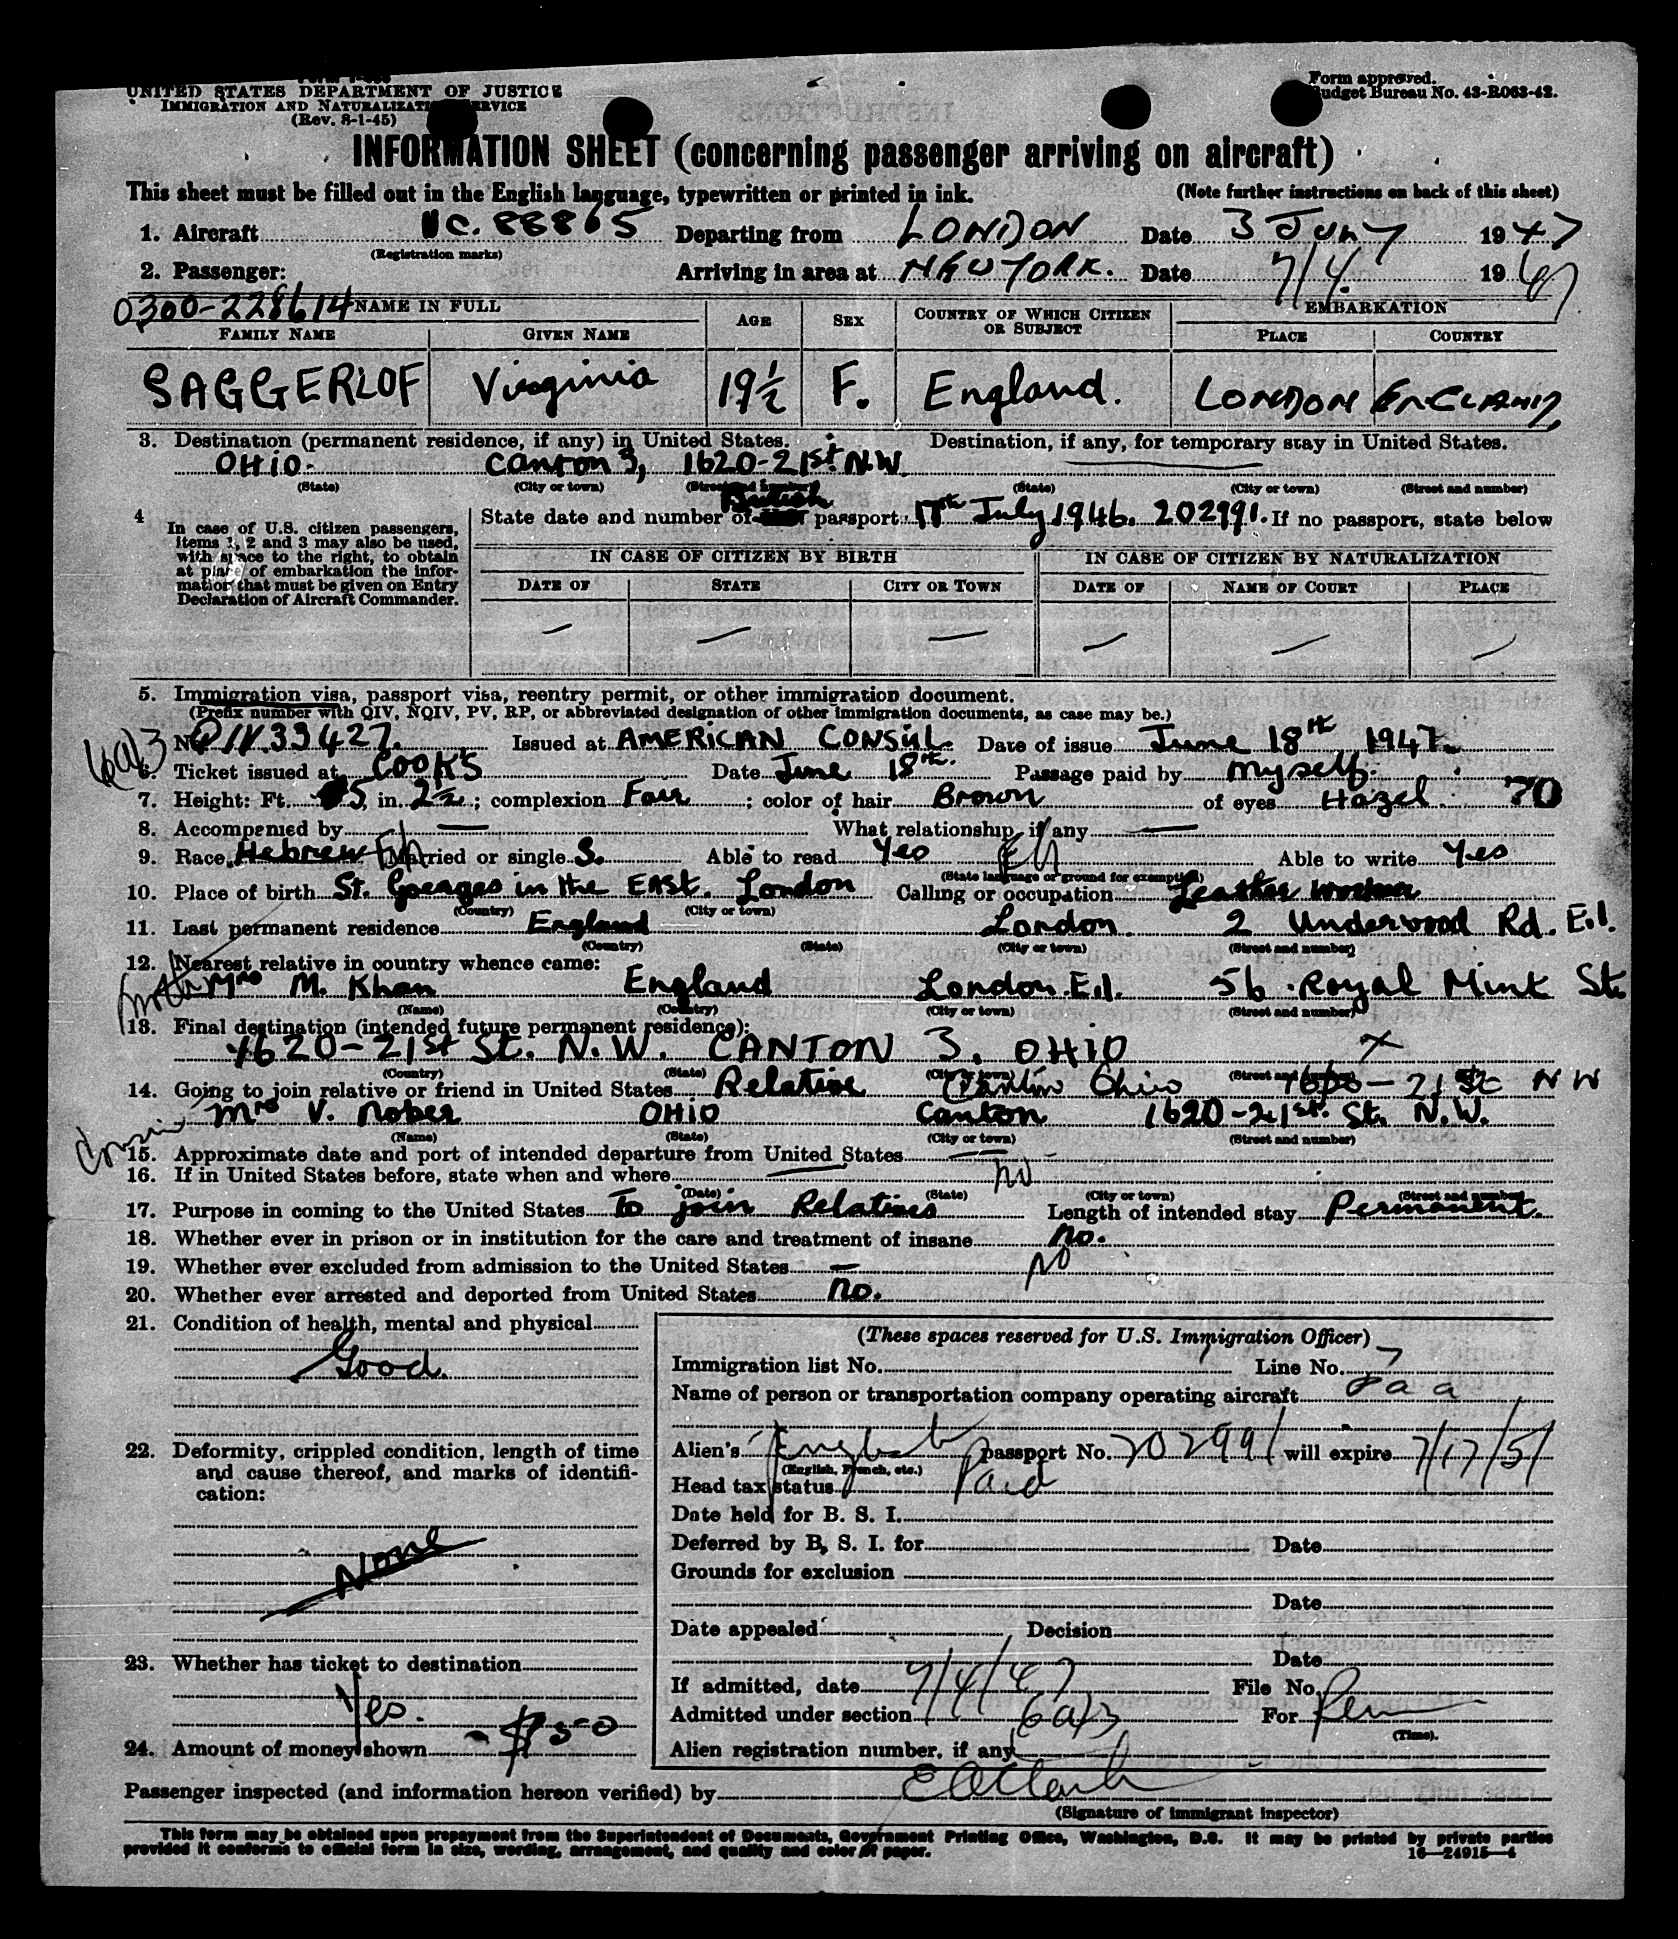 UNITED STATES DEPARTMENT OF JUSTICE
IMMIGRATION AND NATURALIZATION SERVICE
(Rev. 8-1-45)
Form approved.
Budget Bureau No. 43-R063-42.
INFORMATION SHEET (concerning passenger arriving on aircraft)
This sheet must be filled out in the English language, typewritten or printed in ink. (Note further instructions on back of this sheet)
1. Aircraft NC. 88865 Departing from LONDON Date 3 July 1947
(Registration marks)
2. Passenger: Arriving in area at NEW YORK. Date 7/4 1947
0300-228614 NAME IN FULL AGE SEX COUNTRY OF WHICH CITIZEN OR SUBJECT EMBARKATION
FAMILY NAME GIVEN NAME PLACE COUNTRY
SAGGERLOF Virginia 19½ F. England. LONDON ENGLAND
3. Destination (permanent residence, if any) in United States. Destination, if any, for temporary stay in United States.
OHIO. Canton 3, 1620-21st. N.W.
(State) (City or town) (Street and number) (State) (City or town) (Street and number)
British
4 State date and number of passport 17th July 1946. 202991. If no passport, state below
In case of U.S. citizen passengers,
items 1, 2 and 3 may also be used,
with space to the right, to obtain
at place of embarkation the infor-
mation that must be given on Entry
Declaration of Aircraft Commander.
IN CASE OF CITIZEN BY BIRTH IN CASE OF CITIZEN BY NATURALIZATION
DATE OF STATE CITY OR TOWN DATE OF NAME OF COURT PLACE
— — — — — —
5. Immigration visa, passport visa, reentry permit, or other immigration document.
(Prefix number with QIV, NQIV, PV, RP, or abbreviated designation of other immigration documents, as case may be.)
6(a)3 No. QIV.33427. Issued at AMERICAN CONSUL. Date of issue June 18th 1947.
6. Ticket issued at COOKS Date June 18th. Passage paid by myself.
7. Height: Ft. 5, in. 2½; complexion Fair; color of hair Brown of eyes Hazel. 70
8. Accompanied by — What relationship, if any —
9. Race Hebrew Married or single S. Able to read Yes Able to write Yes
(State language or ground for exemption)
10. Place of birth St. Goerges in the EAST. London Calling or occupation Leather worker
(Country) (City or town)
11. Last permanent residence England London. 2 Underwood Rd. E.1.
(Country) (State) (City or town) (Street and number)
12. Nearest relative in country whence came:
Mother Mrs M. Khan England London.E.1. 56 Royal Mint St.
(Name) (Country) (City or town) (Street and number)
13. Final destination (intended future permanent residence):
1620-21st St. N.W. CANTON 3. OHIO X
(Country) (State) (City or town) (Street and number)
14. Going to join relative or friend in United States Relative Canton Ohio 1620-21 St N W
Cousin Mrs V. Nober OHIO Canton 1620-21st. St. N.W.
(Name) (State) (City or town) (Street and number)
15. Approximate date and port of intended departure from United States —
16. If in United States before, state when and where — No
(Date) (State) (City or town) (Street and number)
17. Purpose in coming to the United States To join Relatives Length of intended stay Permanent.
18. Whether ever in prison or in institution for the care and treatment of insane No.
19. Whether ever excluded from admission to the United States — NO
20. Whether ever arrested and deported from United States no.
21. Condition of health, mental and physical
Good.
22. Deformity, crippled condition, length of time
and cause thereof, and marks of identifi-
cation:
None
23. Whether has ticket to destination
Yes.
24. Amount of money shown - $50
(These spaces reserved for U.S. Immigration Officer)
Immigration list No. 1 Line No. 7
Name of person or transportation company operating aircraft P a a
Alien's English passport No. 202991 will expire 7/17/51
(English, French, etc.)
Head tax status Paid
Date held for B. S. I.
Deferred by B. S. I. for Date
Grounds for exclusion
Date
Date appealed Decision
Date
If admitted, date 7/4/47 File No.
Admitted under section 6a3 For Perm
(Time).
Alien registration number, if any
Passenger inspected (and information hereon verified) by E A Clark
(Signature of immigrant inspector)
This form may be obtained upon prepayment from the Superintendent of Documents, Government Printing Office, Washington, D.C. It may be printed by private parties
provided it conforms to official form in size, wording, arrangement, and quality and color of paper. 16—24915-4